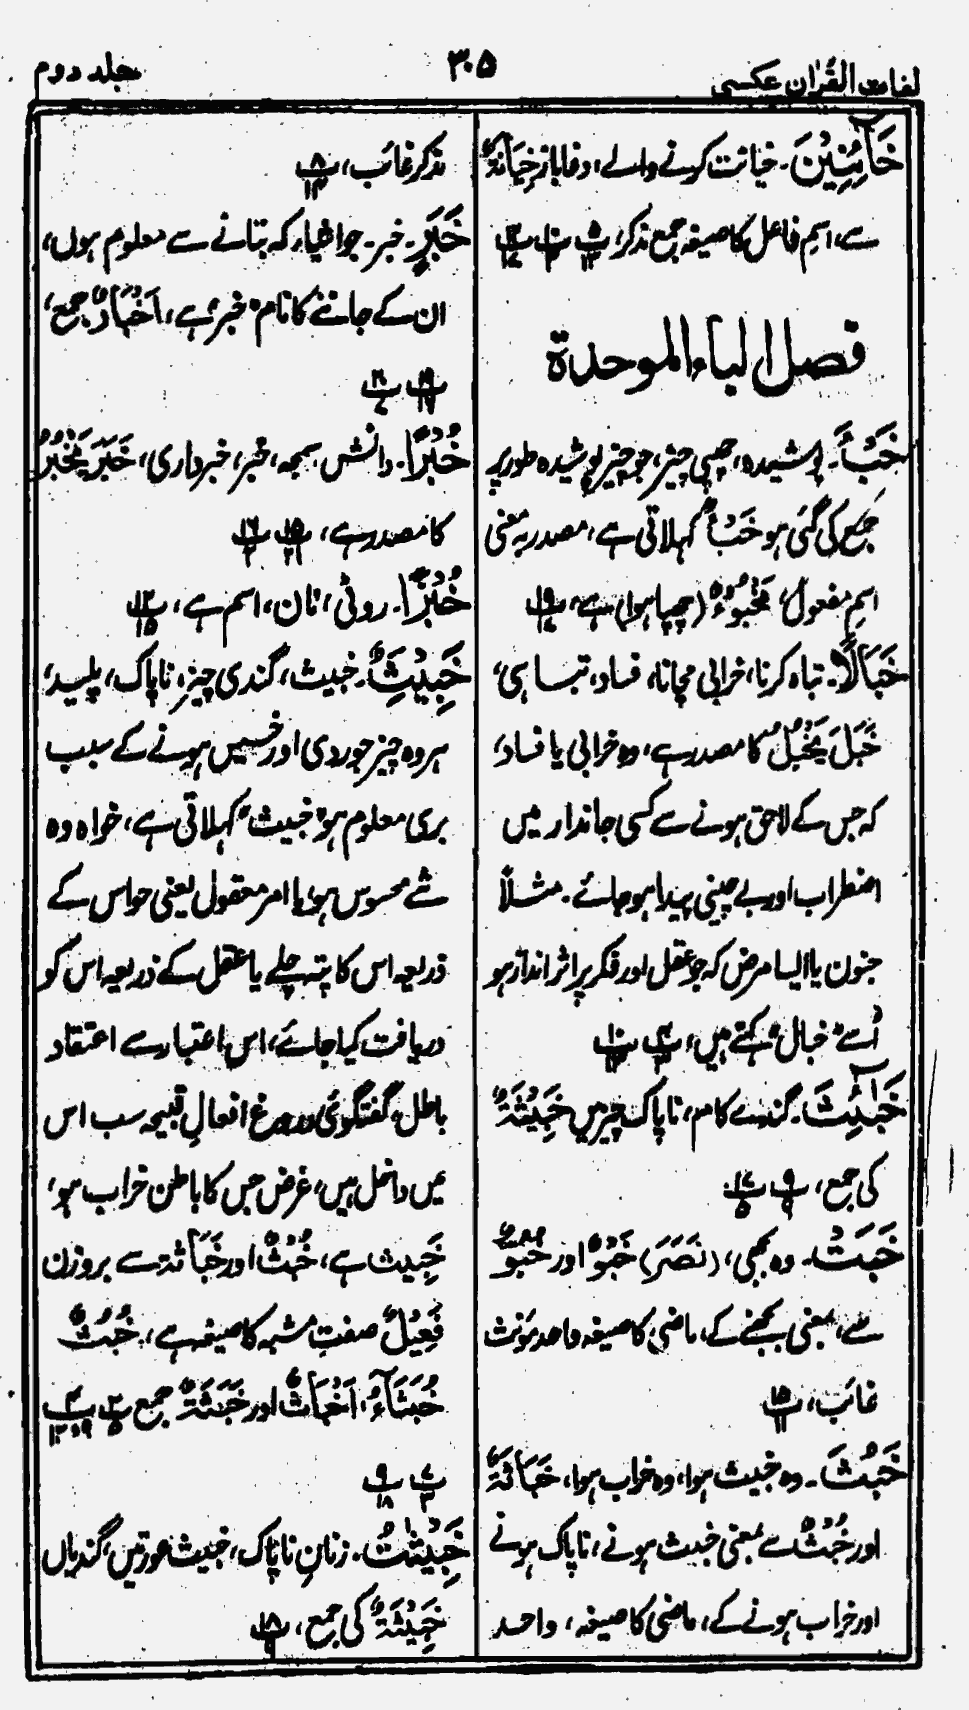 لغات القرآن عکسی
۳۰۵
جلد دوم
خَآئِنِیْنَ۔ خیانت کرنے والے، دغاباز خِیَانَۃٌ
سے، اسمِ فاعل کا صیغہ جمع مذکر،
فصل الباء الموحدۃ
خَبْأَ۔ پوشیدہ، چھپی چیز، جو چیز پوشیدہ طور پر
جمع کی گئی ہو خَبْأٌ کہلاتی ہے، مصدر بمعنی
اسمِ مفعول، مَخْبُوْءٌ (چھپا ہوا) ہے، ۱۹/۱۷
خَبَالًا۔ تباہ کرنا، خرابی مچانا، فساد، تباہی،
خَبَلَ یَخْبُلُ کا مصدر ہے، وہ خرابی یا فساد،
کہ جس کے لاحق ہونے سے کسی جاندار میں
اضطراب اور بے چینی پیدا ہو جائے۔ مثلاً
جنون یا ایسا مرض کہ جو عقل اور فکر پر اثر انداز ہو
اُسے "خبال" کہتے ہیں، ۴/۳ ۱۰/۱۳
خَبٰٓئِثَ۔ گندے کام، ناپاک چیزیں خَبِیْثَۃٌ
کی جمع، ۹/۹ ۱۷/۵
خَبَتْ۔ وہ بجھی، (نَصَرَ) خَبْوٌ اور خُبُوٌّ
سے، بمعنی بجھنے کے، ماضی کا صیغہ واحد مؤنث
غائب، ۱۵/۱۱
خَبُثَ۔ وہ خبیث ہوا، وہ خراب ہوا، خَبَاثَۃٌ
اور خُبْثٌ سے بمعنی خبیث ہونے، ناپاک ہونے
اور خراب ہونے کے، ماضی کا صیغہ، واحد
مذکر غائب، ۸/۱۴
خَبَرٍ۔ خبر۔ جو اخبار کہ بتانے سے معلوم ہوں،
ان کے جاننے کا نام "خبر" ہے، اَخْبَارٌ جمع،
۱۹/۱۶ ۲۰/۷
خُبْرًا۔ دانش، سمجھ، خبر، خبرداری، خَبَرَ یَخْبُرُ
کا مصدر ہے، ۱۵/۲۱ ۱۶/۲
خُبْزًا۔ روٹی، نان، اسم ہے، ۱۲/۱۵
خَبِیْثٌ۔ خبیث، گندی چیز، ناپاک، پلید،
ہر وہ چیز جو ردی اور خسیس ہونے کے سبب
بری معلوم ہو "خبیث" کہلاتی ہے، خواہ وہ
شے محسوس ہو، یا امر معقول یعنی حواس کے
ذریعہ اس کا پتہ چلے یا عقل کے ذریعہ اس کو
دریافت کیا جائے، اس اعتبار سے اعتقاد
باطل، گفتگوئی دروغ افعالِ قبیحہ سب اس
میں داخل ہیں، غرض جس کا باطن خراب ہو،
خَبِیث ہے، خُبْثٌ اور خَبَاثَۃ سے بروزن
فَعِیْلٌ صفتِ مشبہ کا صیغہ ہے، خُبُثٌ
خُبَثَآءُ، اَخْبَاثٌ اور خَبَثَۃٌ جمع ۳/۵ ۴/۹،۱۲
۷/۳ ۹/۱۸
خَبِیْثٰتُ۔ زنانِ ناپاک، خبیث عورتیں، گندیاں
خَبِیْثَۃٌ کی جمع، ۱۸/۹